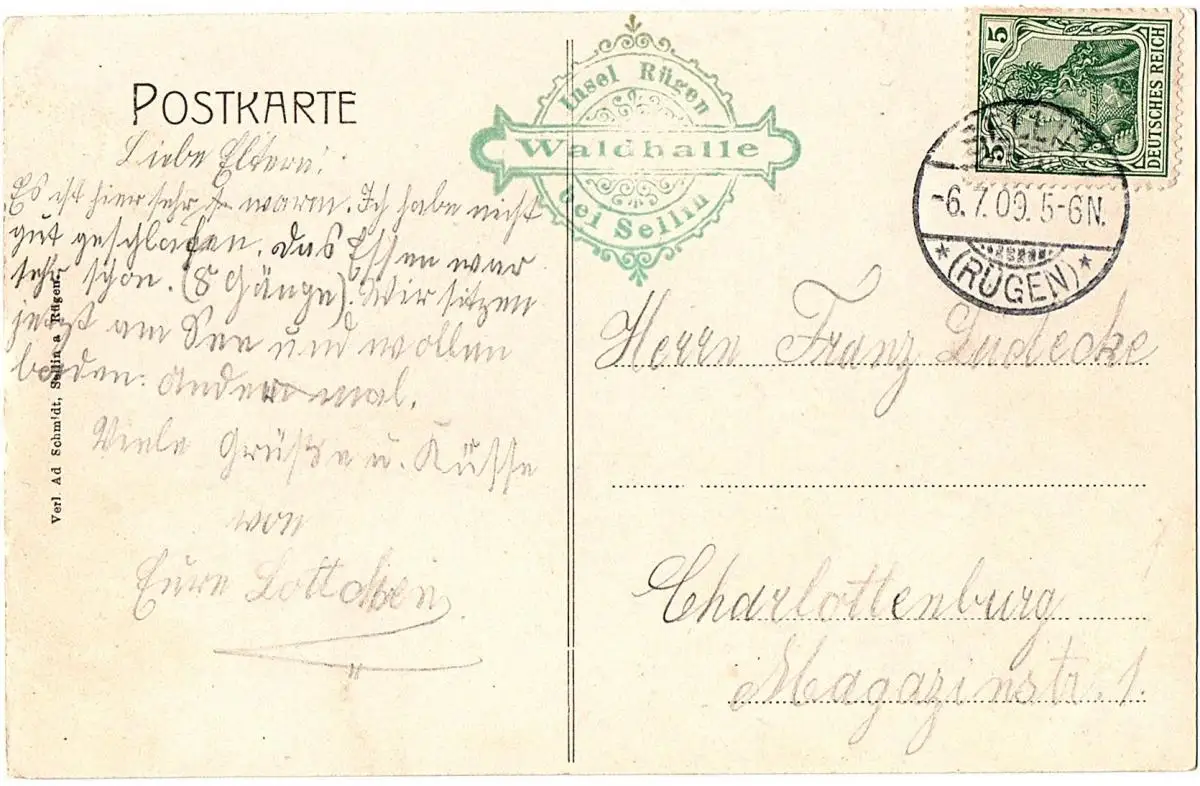 POSTKARTE
Liebe Eltern!
Es ist hier sehr warm. Ich habe nicht
gut geschlafen. Das Essen war
sehr schön. (8 Gänge). Wir sitzen
jetzt am See und wollen
baden. Andermal.
Viele Grüße u. Küsse
von
Eure Lottchen
Verl. Ad Schmidt, Sellin a Rügen.
Insel Rügen
Waldhalle
bei Sellin
5
5
DEUTSCHES REICH
-6.7.09.5-6N.
*(RÜGEN)*
Herrn Franz Ludecke
Charlottenburg
Magazinstr. 1.